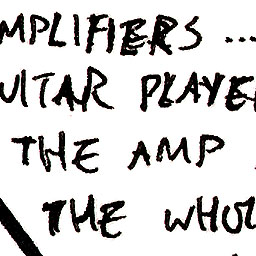 MPLIFIERS ...
UITAR PLAYE
THE AMP
THE WHO